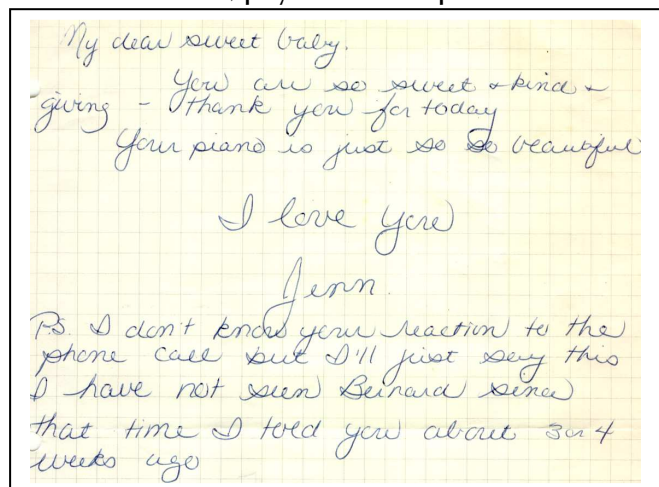 My dear sweet baby.
You are so sweet + kind +
giving - thank you for today
Your piano is just so so beautiful
I love you
Jenn
P.S. I don't know your reaction to the
phone call but I'll just say this
I have not seen Bernard since
that time I told you about 3 or 4
weeks ago